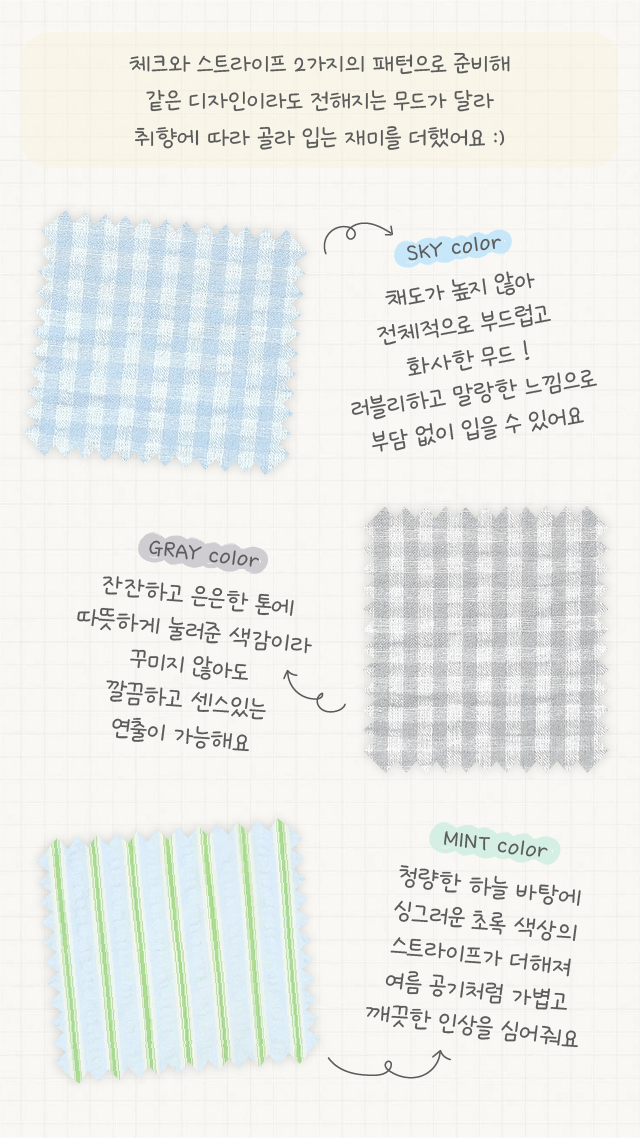 체크와 스트라이프 2가지의 패턴으로 준비해
같은 디자인이라도 전해지는 무드가 달라
취향에 따라 골라 입는 재미를 더했어요 :)
SKY color
채도가 높지 않아
전체적으로 부드럽고
화사한 무드 !
러블리하고 말랑한 느낌으로
부담 없이 입을 수 있어요
GRAY color
잔잔하고 은은한 톤에
따뜻하게 눌러준 색감이라
꾸미지 않아도
깔끔하고 센스있는
연출이 가능해요
MINT color
청량한 하늘 바탕에
싱그러운 초록 색상의
스트라이프가 더해져
여름 공기처럼 가볍고
깨끗한 인상을 심어줘요